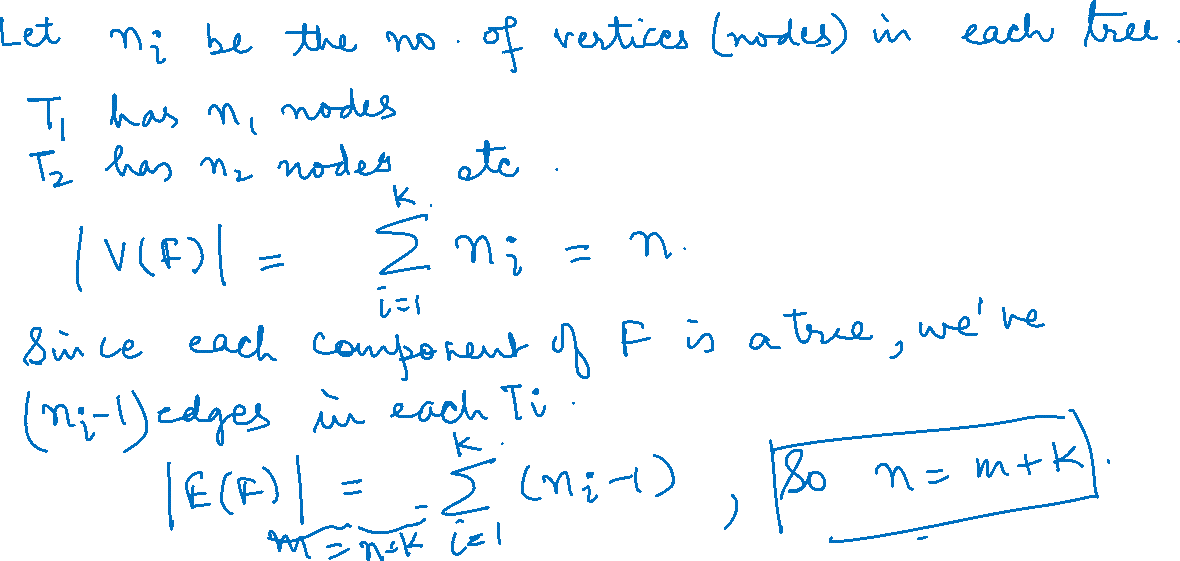 Let nᵢ be the no. of vertices (nodes) in each tree.
T₁ has n₁ nodes
T₂ has n₂ nodes etc.
|V(F)| = ∑_{i=1}^{K} nᵢ = n.
Since each component of F is a tree, we've
(nᵢ-1) edges in each Tᵢ.
|E(F)| = ∑_{i=1}^{K} (nᵢ-1), So n = m+K.
m = n-K